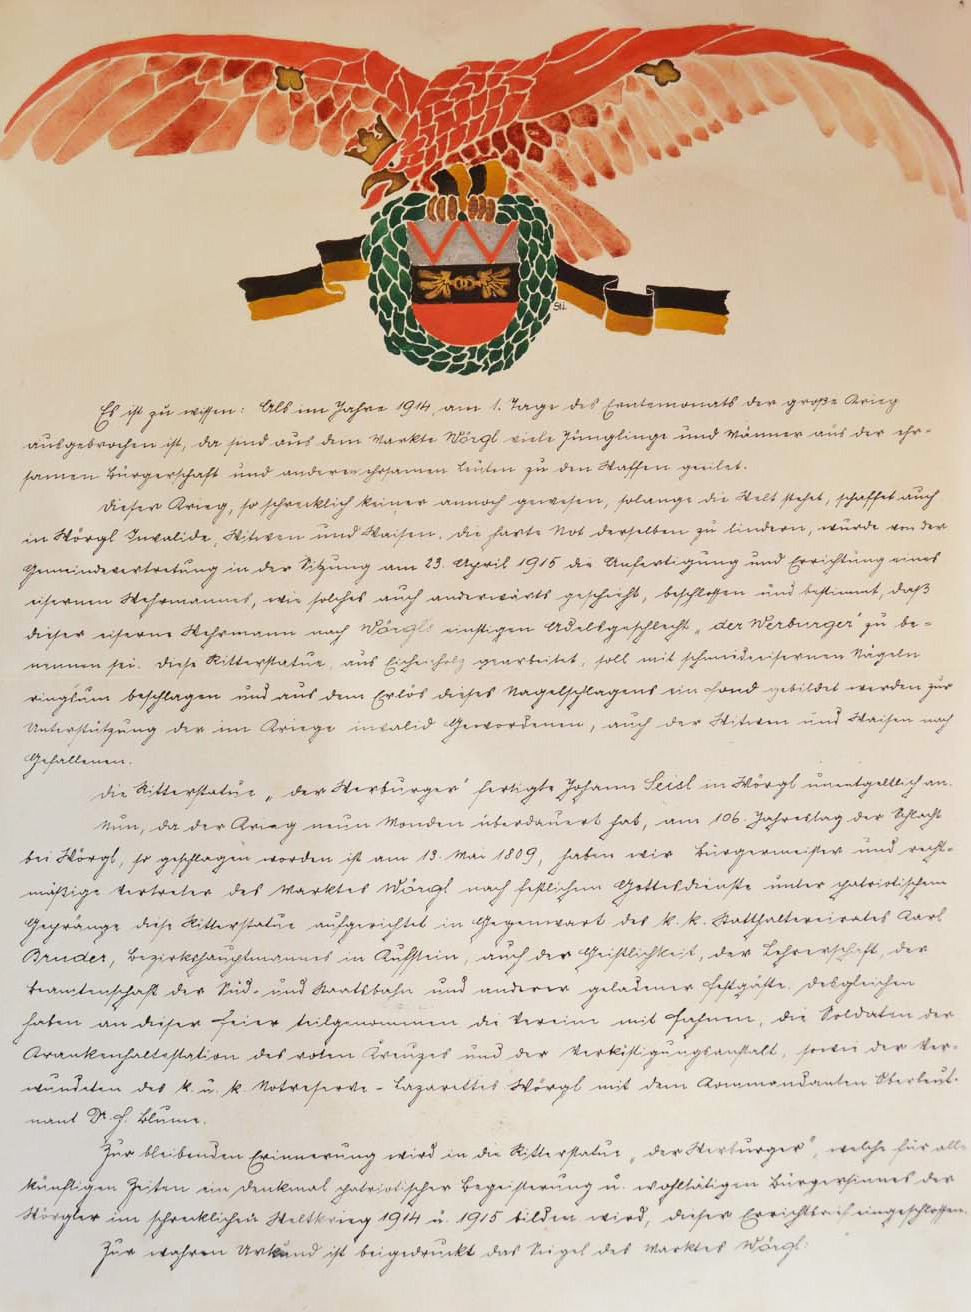 Sti.
Es ist zu wissen: Als im Jahre 1914, am 1. Tage des Erntemonats der große Krieg
ausgebrochen ist, da sind aus dem Markte Wörgl viele Jünglinge und Männer aus der ehr-
samen Bürgerschaft und anderen ehrsamen Leuten zu den Waffen geeilet.
Dieser Krieg, so schrecklich keiner annoch gewesen, solange die Welt stehet, schaffet auch
in Wörgl Invalide, Witwen und Waisen. Die harte Not derselben zu lindern, wurde von der
Gemeindevertretung in der Sitzung am 23. April 1915 die Anfertigung und Errichtung eines
eisernen Wehrmannes, wie solches auch anderwärts geschieht, beschlossen und bestimmt, daß
dieser eiserne Wehrmann nach Wörgls einstigen Adelsgeschlecht „der Werburger" zu be-
nennen sei. Diese Ritterstatue, aus Eichenholz gearbeitet, soll mit schmiedeisernen Nägeln
ringsum beschlagen und aus dem Erlös dieses Nagelschlagens ein Fond gebildet werden zur
Unterstützung der im Kriege invalid Gewordenen, auch der Witwen und Waisen nach
Gefallenen.
Die Ritterstatue „der Werburger" fertigte Johann Seisl in Wörgl unentgeltlich an.
Nun, da der Krieg neun Monden überdauert hat, am 106. Jahrestag der Schlacht
bei Wörgl, so geschlagen worden ist am 13. Mai 1809, haben wir Bürgermeister und recht-
mäßige Vertreter des Marktes Wörgl nach festlichem Gottesdienste unter patriotischem
Gepränge diese Ritterstatue aufgerichtet in Gegenwart des k. k. Statthaltereirates Karl
Bruder, Bezirkshauptmannes in Kufstein, auch der Geistlichkeit, der Lehrerschaft, der
Beamtenschaft der Süd- und Staatsbahn und anderer geladener Festgäste. Desgleichen
haben an dieser Feier teilgenommen die Vereine mit Fahnen, die Soldaten der
Krankenhaltestation des roten Kreuzes und der Verköstigungsanstalt, sowie der Ver-
wundeten des k. u. k. Notreserve-Lazarettes Wörgl mit dem Kommandanten Oberleut-
nant Dr. F. Blume.
Zur bleibenden Erinnerung wird in die Ritterstatue „der Werburger", welche für alle
künftigen Zeiten ein Denkmal patriotischer Begeisterung u. wohltätigen Bürgersinnes der
Wörgler im schrecklichen Weltkrieg 1914 u. 1915 bilden wird, dieser Errichtbrief eingeschlossen.
Zur wahren Urkund ist beigedruckt das Siegel des Marktes Wörgl: